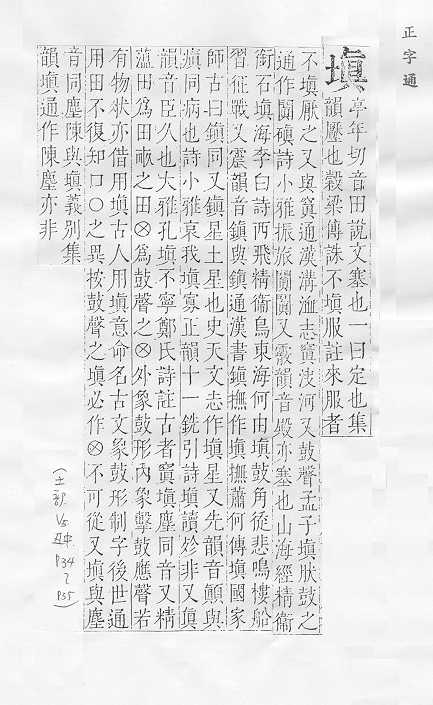 正字通
塡
亭年切音田說文塞也一曰定也集
韻壓也穀梁傳誅不塡服註來服者
不塡厭之又與窴通漢溝洫志窴決河又鼓聲孟子塡肰鼓之
通作闐磌詩小雅振旅闐闐又霰韻音殿亦塞也山海經精衞
銜石塡海李白詩西飛精衞鳥東海何由塡鼓角徒悲鳴樓船
習征戰又震韻音鎭與鎭通漢書鎭撫作塡撫蕭何傳塡國家
師古曰鎭同又鎭星土星也史天文志作塡星又先韻音顚與
瘨同病也詩小雅哀我塡寡正韻十一銑引詩塡讀殄非又眞
韻音臣久也大雅孔塡不寧鄭氏詩註古者窴塡塵同音又精
薀田爲田畞之田⊗爲鼓聲之⊗外象鼓形內象擊鼓應聲若
有物狀亦借用塡古人用塡意命名古文象鼓形制字後世通
用田不復知口〇之異按鼓聲之塡必作⊗不可從又塡與塵
音同塵陳與塡義別集
韻塡通作陳塵亦非
(土部 V5 P34~P35)